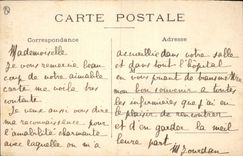 CARTE POSTALE
Correspondance
Mademoiselle
Je vous remercie beau
coup de votre aimable
carte me voila bien
contante
Je veux aussi vous dire
ma reconnaissance pour
l'amabilité charmante
avec laquelle on m'a
Adresse
accueillie dans votre salle
et dans tout l'hôpital
en vous priant de transmettre
mon bon souvenir a toutes
les infirmières que j'ai eu
le plaisir de rencontrer
et d'en garder la meil
leure part
M Jourdan